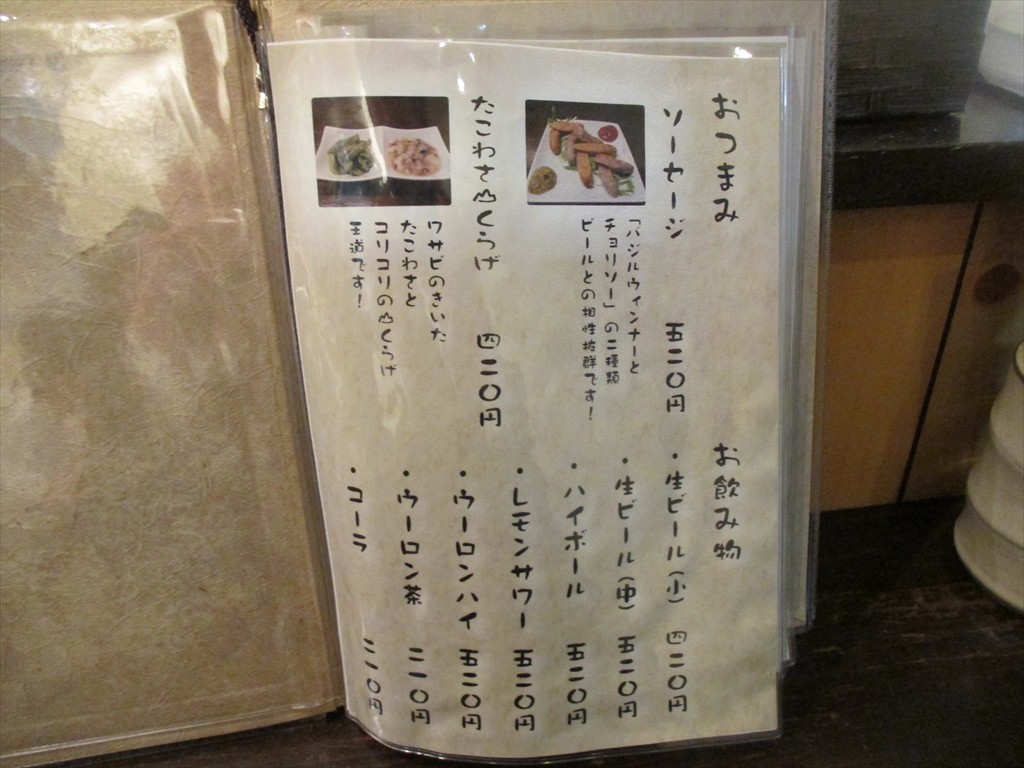 おつまみ
ソーセージ 五二〇円
「バジルウィンナーと
チョリソー」の二種類
ビールとの相性抜群です！
たこわさ山くらげ 四二〇円
ワサビのきいた
たこわさと
コリコリの山くらげ
王道です！
お飲み物
・生ビール(小) 四二〇円
・生ビール(中) 五二〇円
・ハイボール 五二〇円
・レモンサワー 五二〇円
・ウーロンハイ 五二〇円
・ウーロン茶 二一〇円
・コーラ 二一〇円